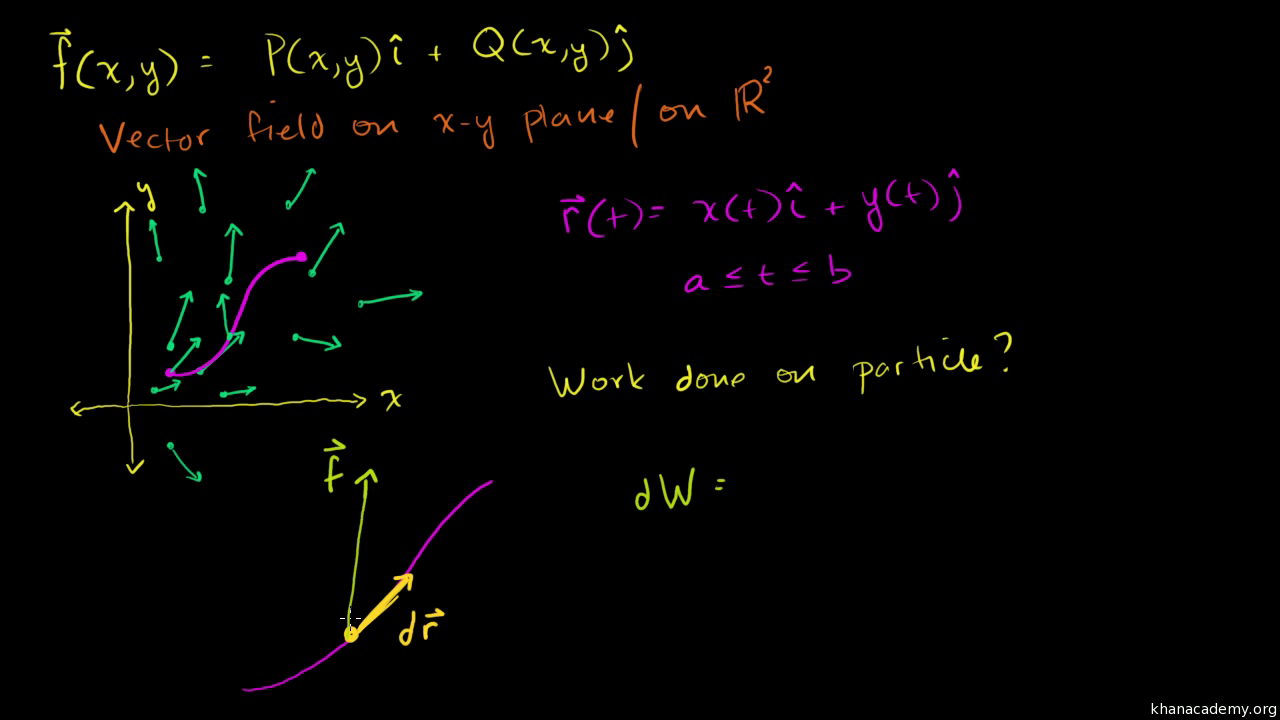 f⃗(x,y) = P(x,y)î + Q(x,y)ĵ
Vector field on x-y plane/on ℝ²
y
r⃗(t)= x(t)î + y(t)ĵ
a ≤ t ≤ b
Work done on particle?
x
f⃗
dW =
dr⃗
khanacademy.org